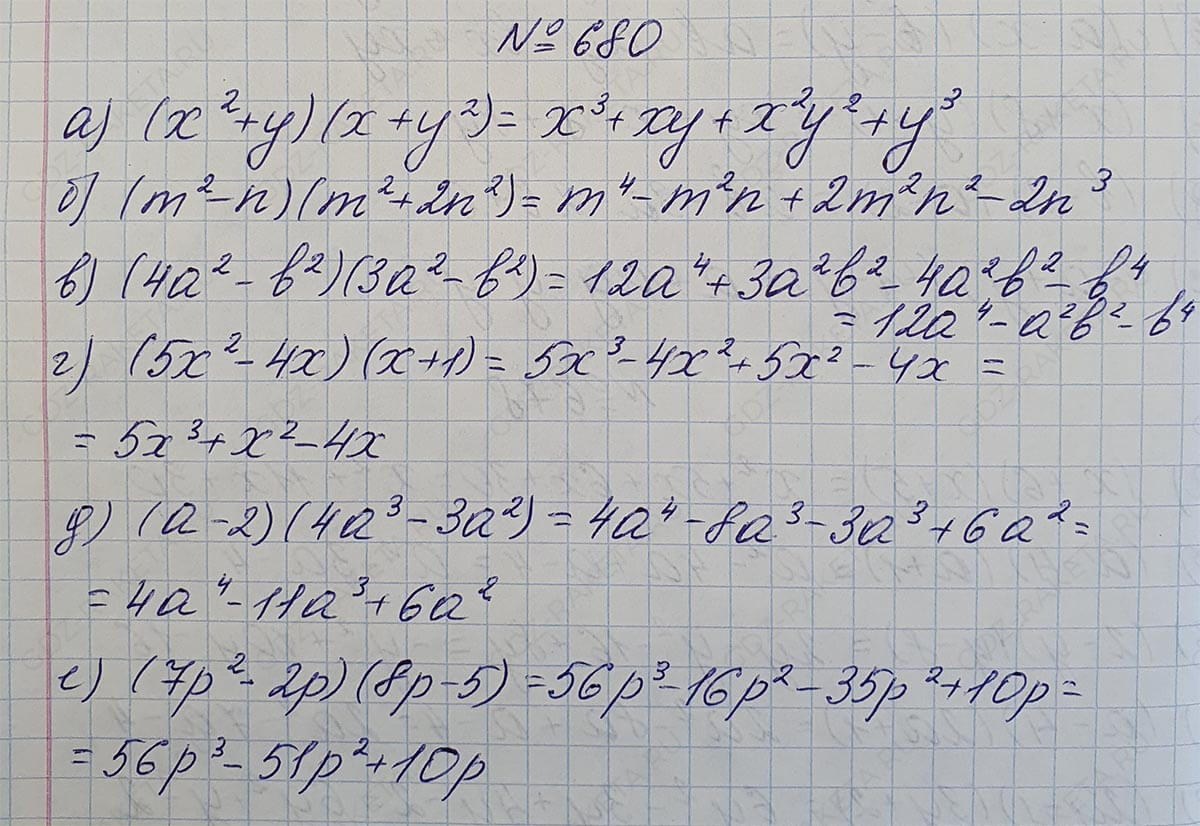 № 680
а) (x²+y)(x+y²)= x³+xy+x²y²+y³
б) (m²-n)(m²+2n²)= m⁴-m²n+2m²n²-2n³
в) (4a²-b²)(3a²-b²)= 12a⁴+3a²b²-4a²b²-b⁴
= 12a⁴-a²b²-b⁴
г) (5x²-4x)(x+1)= 5x³-4x²+5x²-4x =
= 5x³+x²-4x
д) (a-2)(4a³-3a²)= 4a⁴-8a³-3a³+6a²=
= 4a⁴-11a³+6a²
е) (7p²-2p)(8p-5)=56p³-16p²-35p²+10p=
= 56p³-51p²+10p